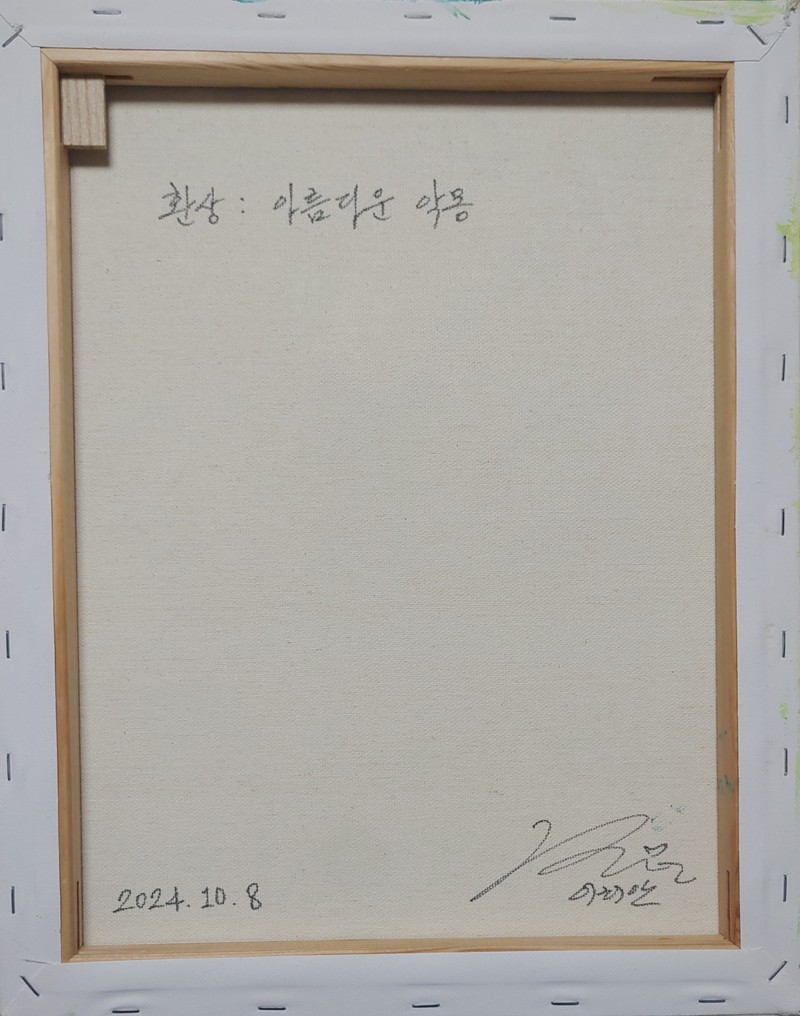 환상: 아름다운 악몽
2024.10.8